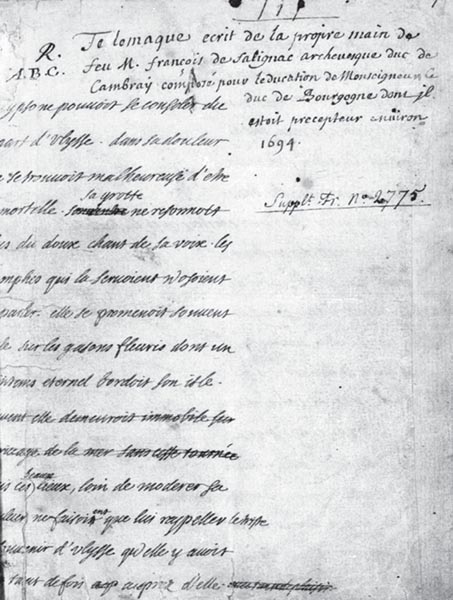 R.
A.B.C.
Telemaque ecrit de la propre main de
feu M. francois de Salignac archevesque duc de
Cambray composé pour l'education de Monseigneur le
duc de Bourgogne dont il
estoit precepteur environ
1694.
Supplt. Fr. No 2775.
lypso ne pouvoit se consoler du
part d'Ulysse. dans sa douleur
se trouvoit malheureuse d'etre
sa grotte
mortelle ne resonnoit
us du doux chant de sa voix les
mphes qui la servoient n'osoient
parler. elle se promenoit souvent
le sur les gasons fleuris dont un
ntems eternel bordoit son isle.
vent elle demeuroit immobile sur
rivage de la mer sans cesse tournée
beaux
lieux, loin de moderer sa
leur ne faisoint que lui rappeller le triste
souvenir d'ulysse qu'elle y avoit
tant de fois auprez d'elle